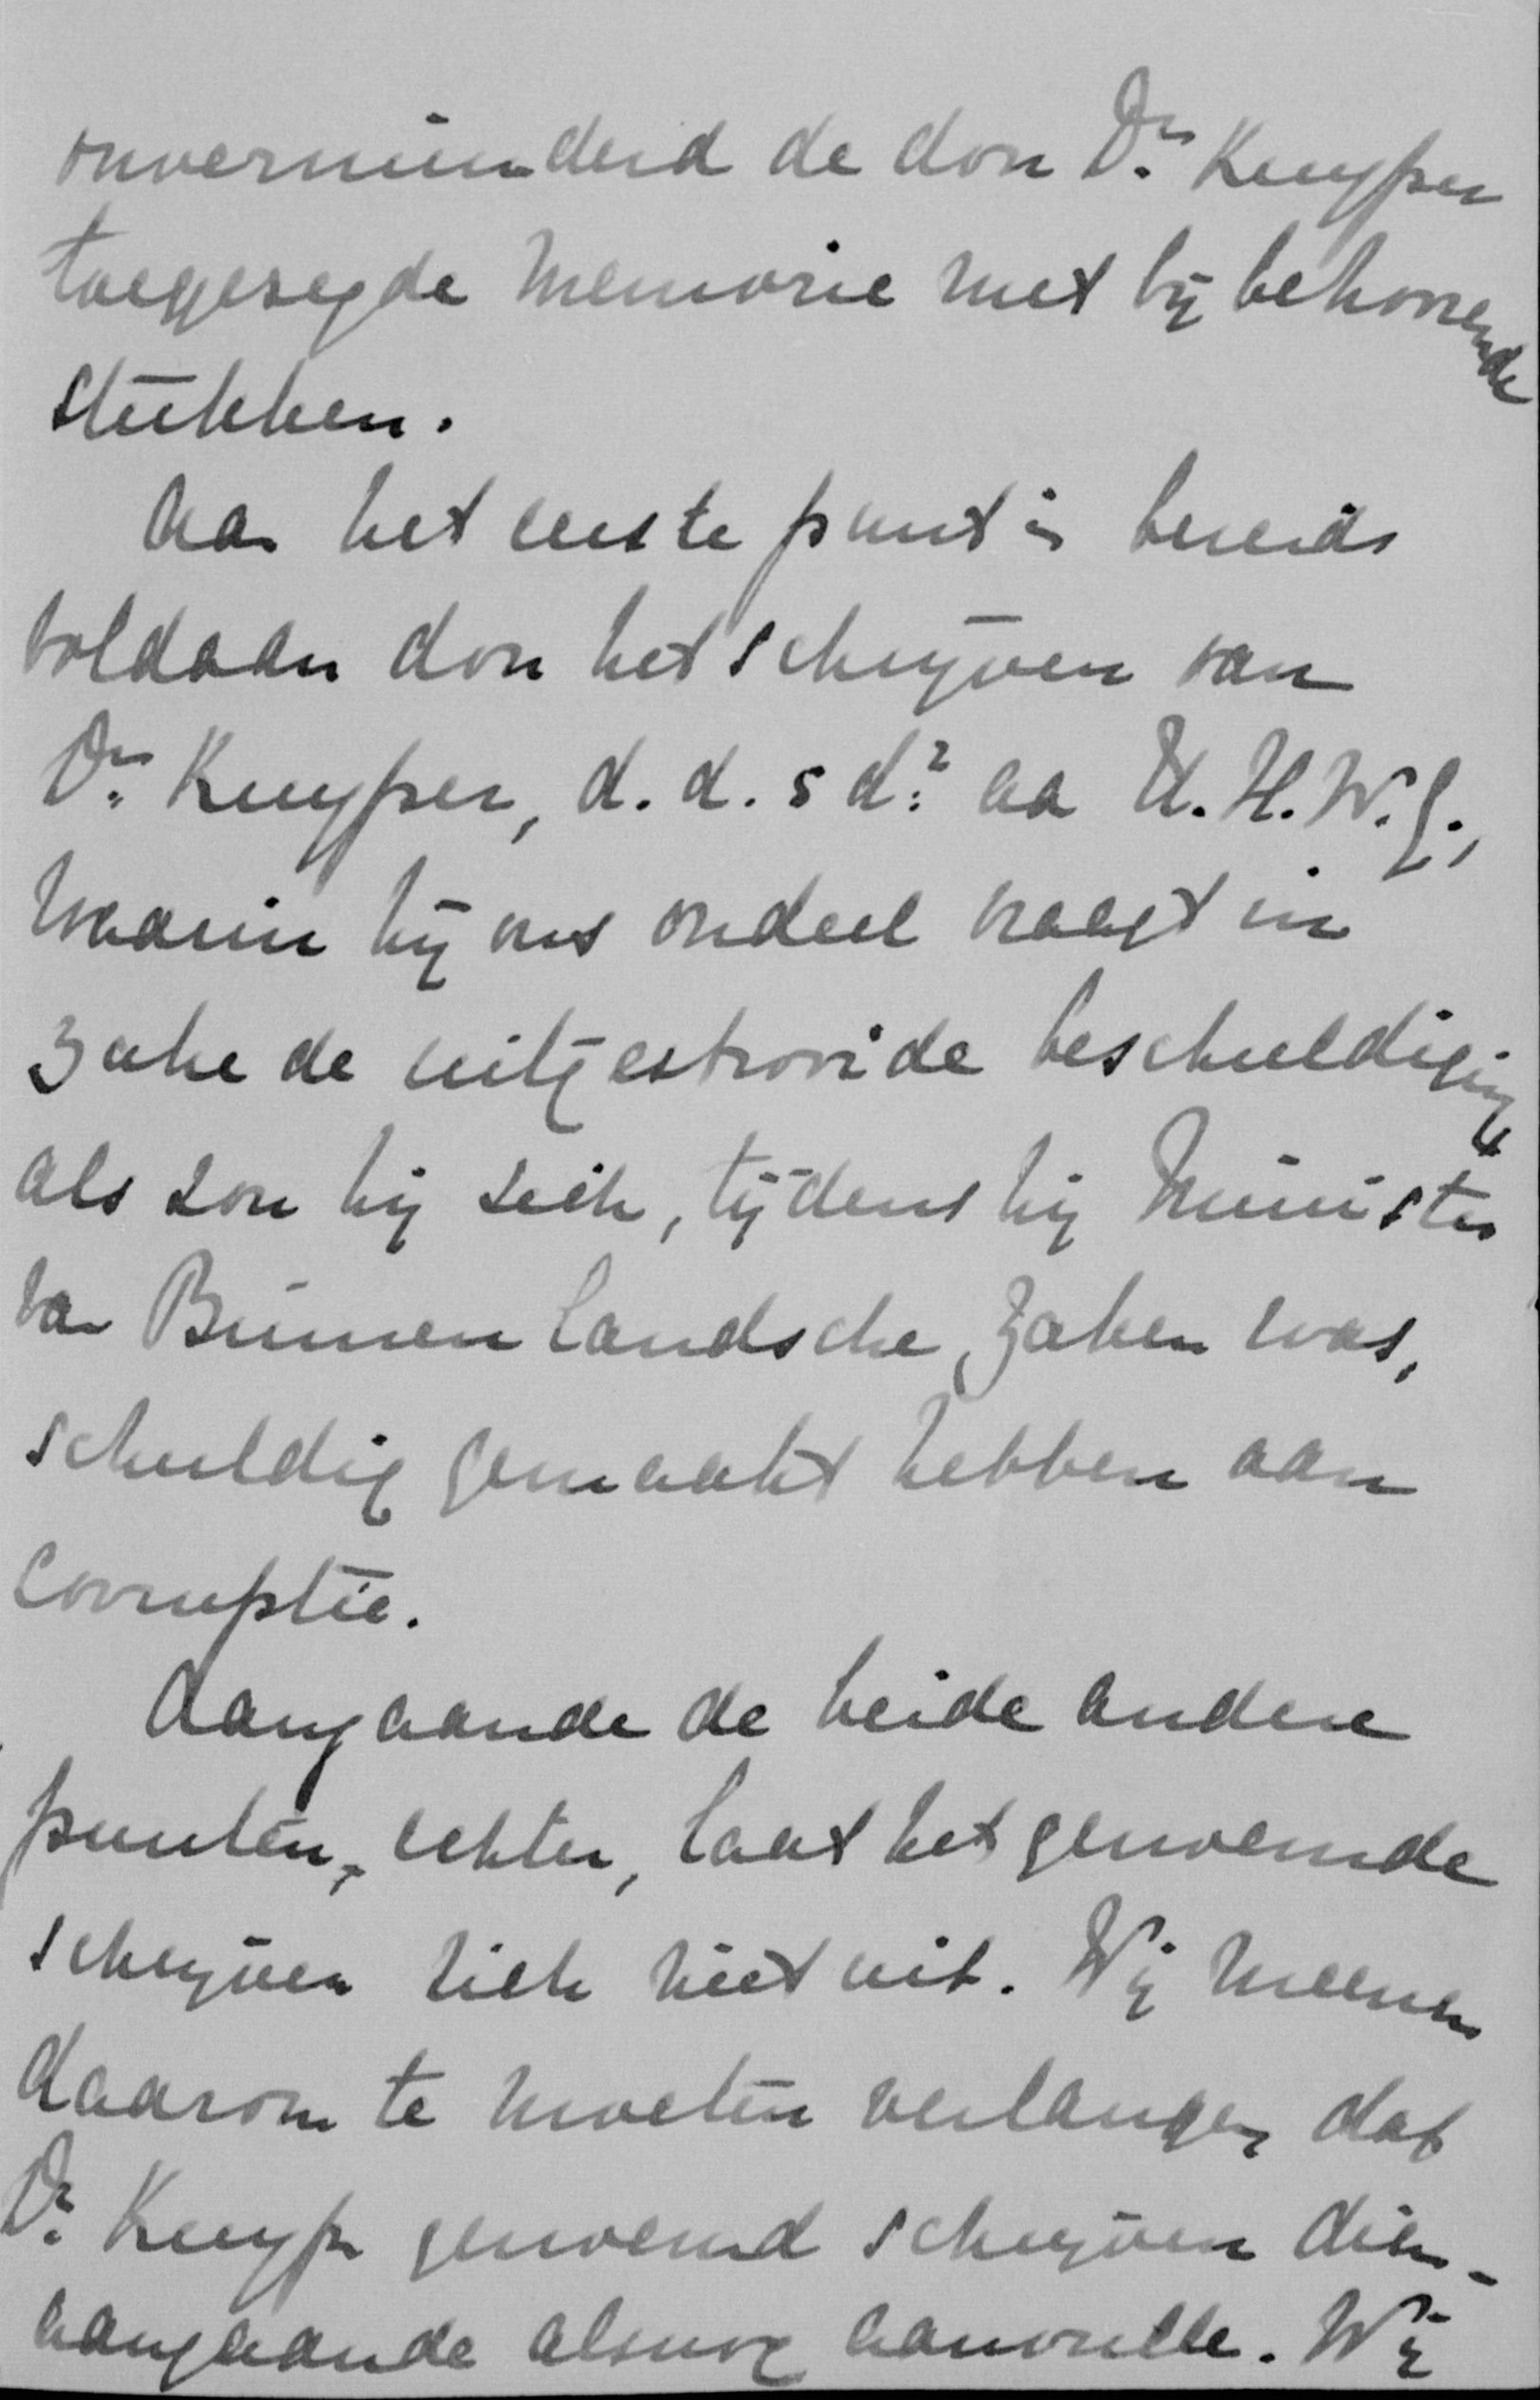 onverminderd de door Dr. Kuyper
toegezegde Memorie met bijbehoorende
stukken.
Aan het eerste punt is bereids
voldaan door het schrijven van
Dr. Kuyper, d.d. aa U.H.W.G.,
waarin hij ons oordeel vraagt in
zake de uitgestrooide beschuldiging
als zou hij zich, tijdens hij Minister
van Binnenlandsche Zaken was,
schuldig gemaakt hebben aan
corruptie.
Aangaande de beide andere
punten, echter, laat het genoemde
schrijven zich niet uit. Wij meenen
daarom te moeten verlangen dat
Dr. Kuyper genoemd schrijven dien-
aangaande alsnog aanvulle. Wij